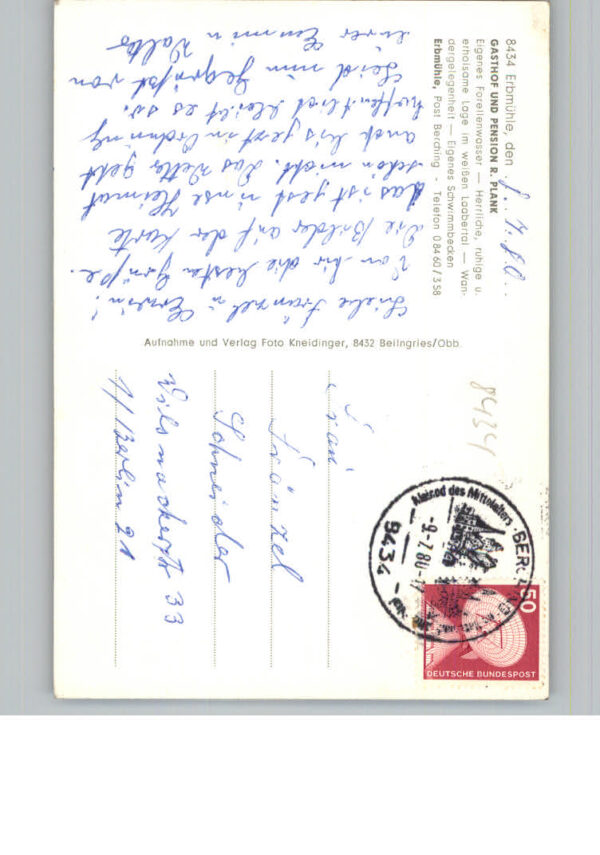 8434 Erbmühle, den 8.7.80.
GASTHOF UND PENSION R. PLANK
Eigenes Forellenwasser — Herrliche, ruhige u.
erholsame Lage im weißen Laabertal — Wan-
dergelegenheit — Eigenes Schwimmbecken
Erbmühle, Post Berching - Telefon 08460/358
Liebe Fränzel u Erwin!
Von hir die besten Grüße.
Die Bilder auf der Karte
das ist gest unse Heimat
schön nicht. Das Wetter geht
auch bis gezt in Ordnung
hoffentlich bleibt es so.
Seid nun Gegrüßt von
eurer Emmi u Walter
Aufnahme und Verlag Foto Kneidinger, 8432 Beilngries/Obb.
8434
Kleinod des Mittelalters
BERCHING
-9.-7.80-17
8434
50
DEUTSCHE BUNDESPOST
Frau
Fränzel
Schneider
Wilsnackerstr 33
1/Berlin 21